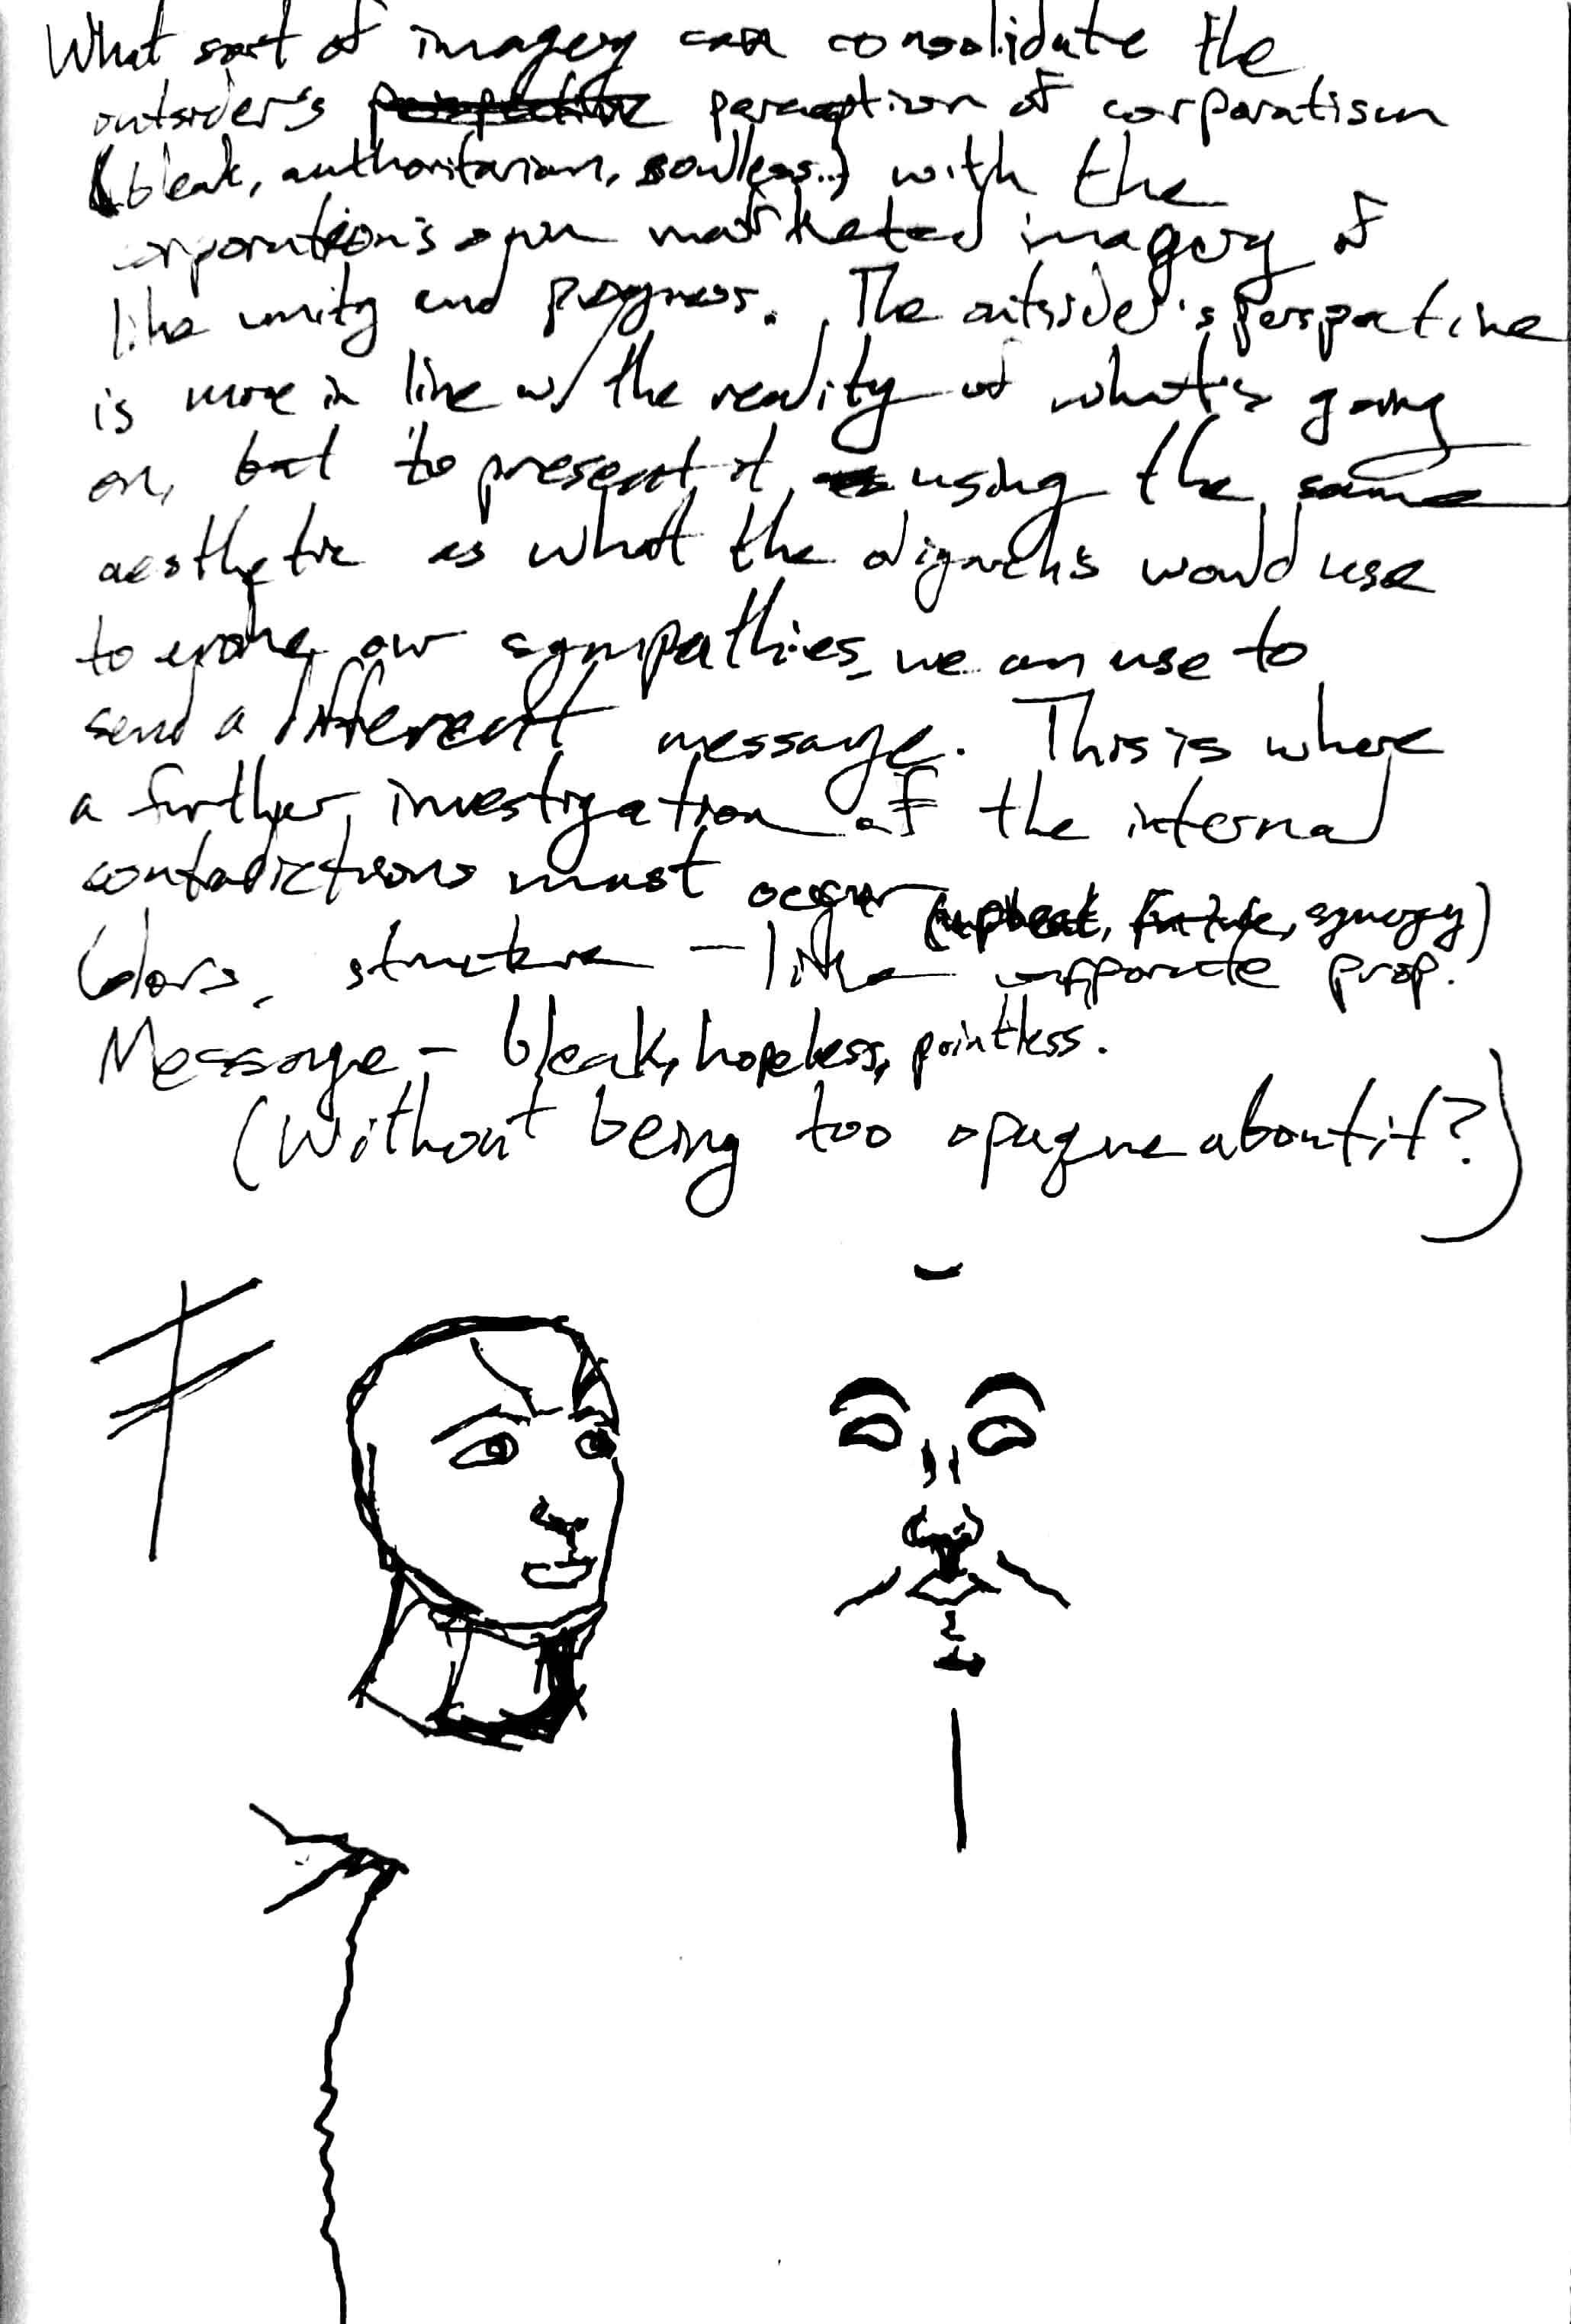 What sort of imagery can consolidate the
outsider's perspective perception of corporatism
(bleak, authoritarian, soulless..) with the
corporation's own marketed imagery of
like unity and progress. The outsider's perspective
is more in line w/ the reality of what's going
on, but to present it using the same
aesthetic as what the oligarchs would use
to evoke our sympathies we can use to
send a different message. This is where
a further investigation of the internal
contradictions must occur
(upbeat, future, synergy)
Colors, structure - like corporate prop.
Message - bleak, hopeless, pointless.
(Without being too opaque about it?)